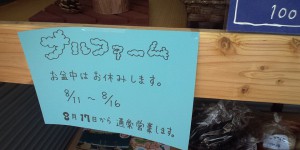 サルファーム
お盆中はお休みします。
8/11 〜 8/16
8月17日から通常営業します。
100